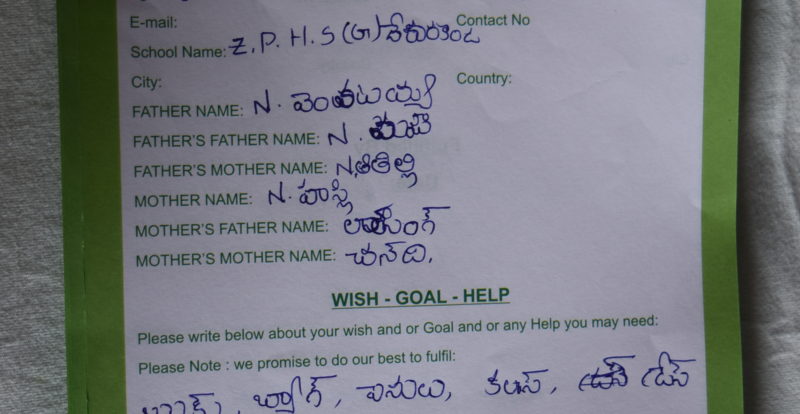 E-mail: Contact No
School Name: Z.P.H.S (G) దేవరకొండ
City: Country:
FATHER NAME: N. వెంకటయ్య
FATHER'S FATHER NAME: N.
FATHER'S MOTHER NAME: N.
MOTHER NAME: N. హస్లి
MOTHER'S FATHER NAME:
MOTHER'S MOTHER NAME: చనేది.
WISH - GOAL - HELP
Please write below about your wish and or Goal and or any Help you may need:
Please Note : we promise to do our best to fulfil:
బుక్స్, బ్యాగ్, పెనులు, కలర్స్,